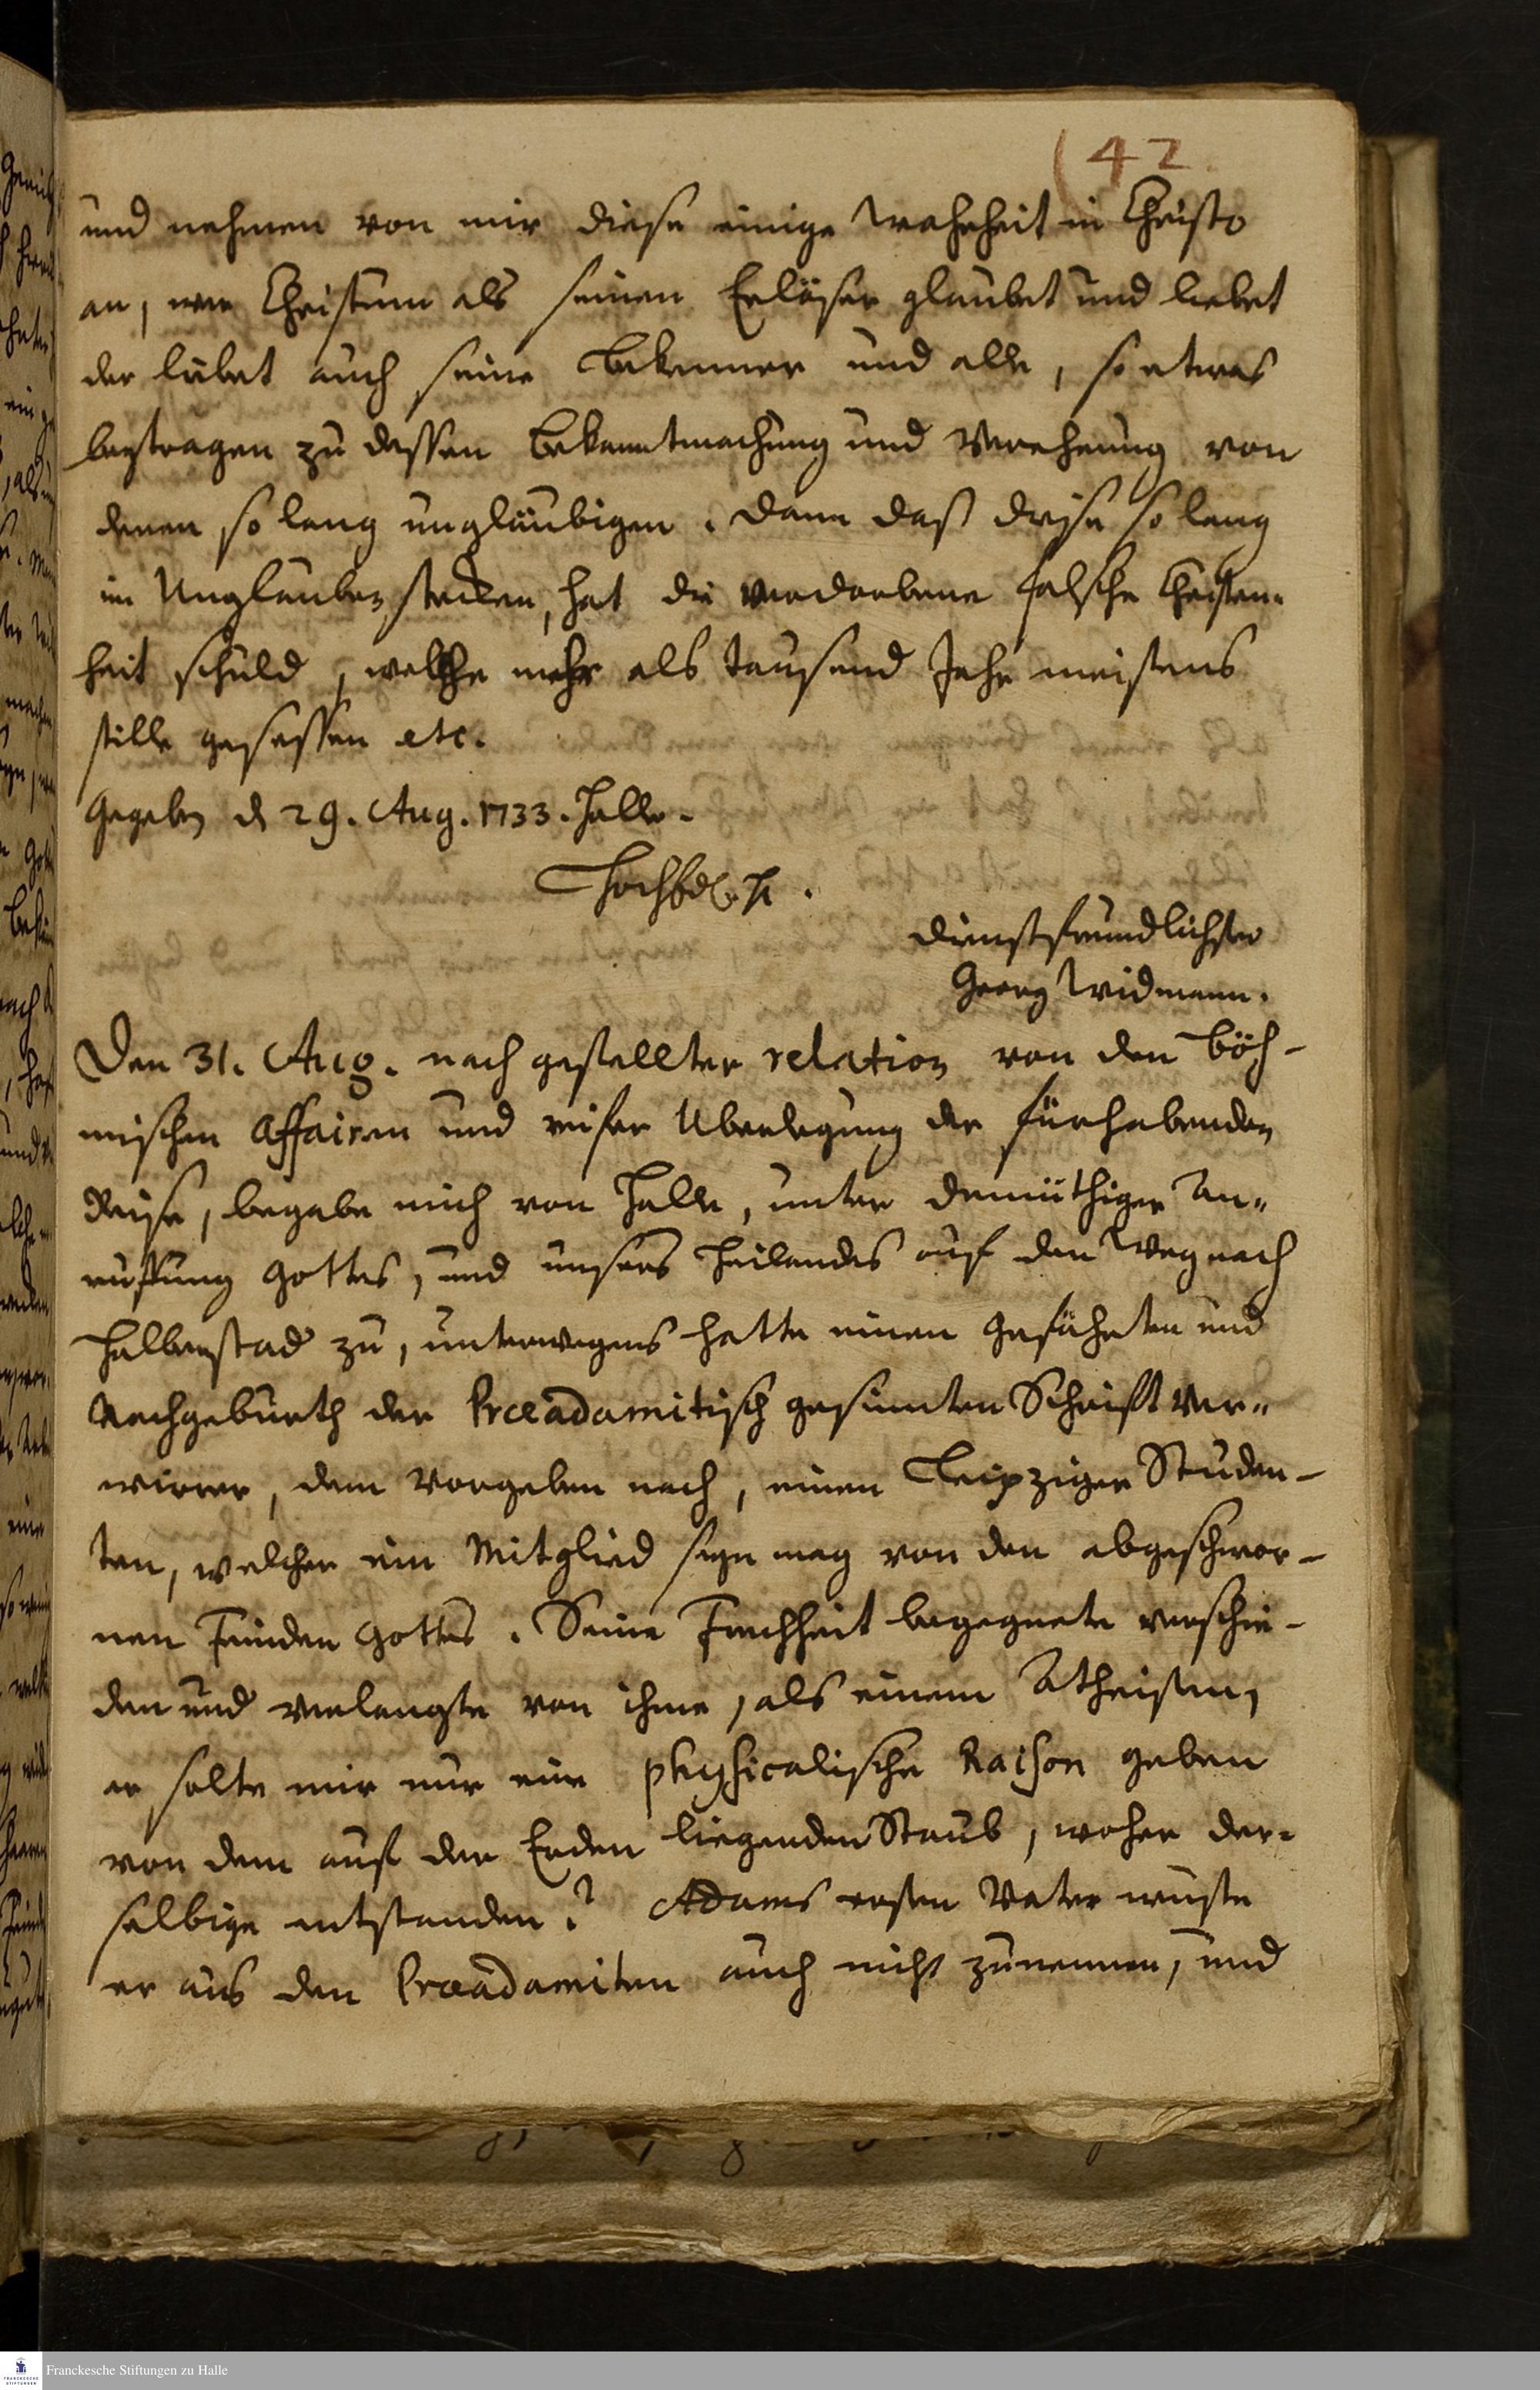 (42
und nehmen von mir diese einige Wahrheit in Christo
an, wer Christum als seinen Erlöser glaubet und liebet
der liebet auch seine Bekenner und alle, so etwas
beytragen zu dessen Bekanntmachung und Verehrung von
denen so lang ungläubigen. Dann daß diese so lang
im Unglauben stecken, hat die verdorbene falsche Christen-
heit schuld, welche mehr als tausend Jahr meistens
stille gesessen etc.
Gegeben d 29. Aug. 1733. Halle.
Dienstfreundlichster
Georg Widmann.
Den 31. Aug. nach gestellter relation von den Böh-
mischen Affairen und reifer Uberlegung der fürhabenden
Reise, begabe mich von Halle, unter demüthiger An-
ruffung Gottes, und unsers Heilandes auf den Weg nach
Halberstad zu, unterwegens hatte einen Gefährten und
Nachgeburth der Præadamitisch gesinnten Schrift Ver-
wirrer, dem Vorgeben nach, einen Leipziger Studen-
ten, welcher ein Mitglied seyn mag von den abgeschwor-
nen Feinden Gottes. Seine Frechheit begegnete verschie-
den und verlangte von ihme, als einem Atheisten,
er solte mir nur eine physicalische Raison geben
von dem auf der Erden liegenden Staub, woher der-
selbige entstanden? Adams ersten Vater wuste
er aus den Præadamiten auch nicht zunennen, und
Franckesche Stiftungen zu Halle